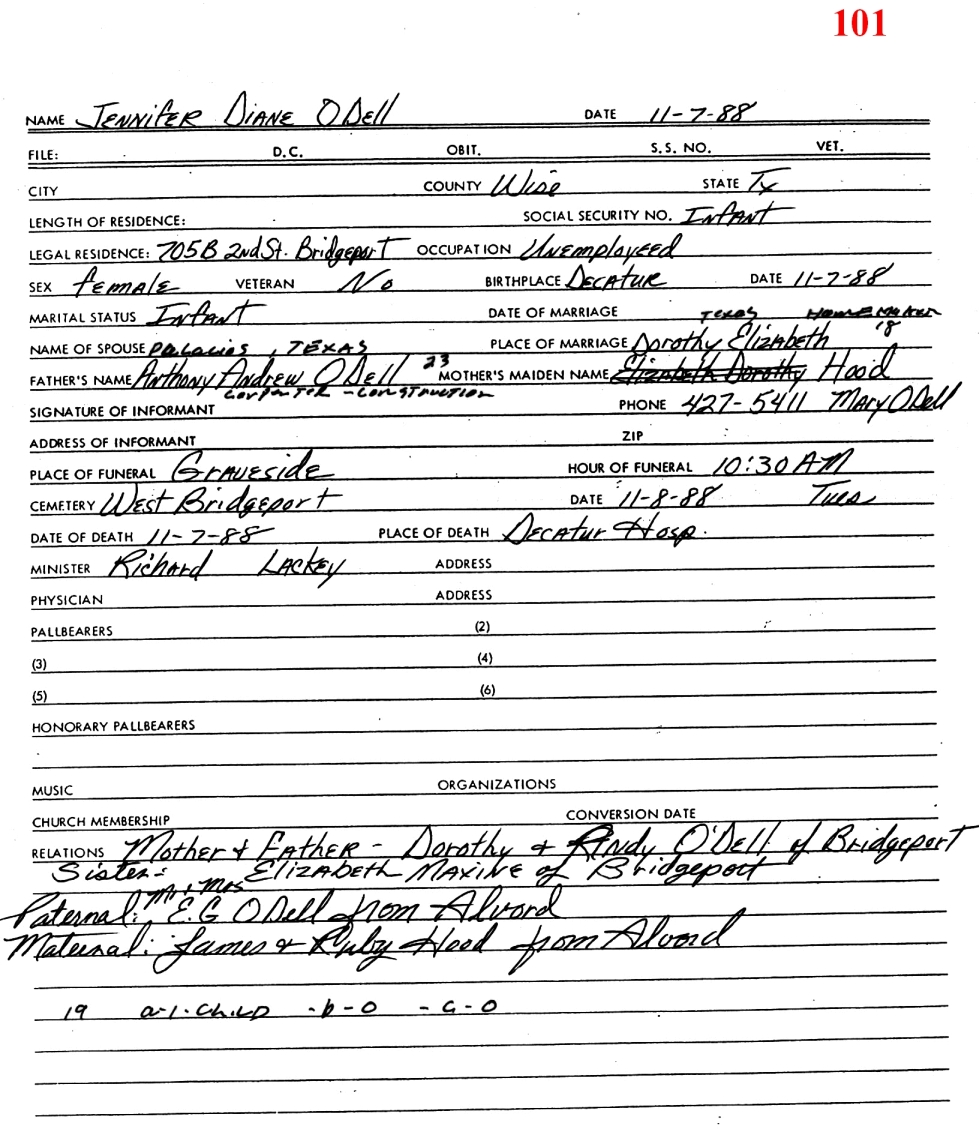 101
NAME Jennifer Diane O Dell DATE 11-7-88
FILE: D.C. OBIT. S.S. NO. VET.
CITY COUNTY Wise STATE Tx
LENGTH OF RESIDENCE: SOCIAL SECURITY NO. Infant
LEGAL RESIDENCE: 705B 2nd St. Bridgeport OCCUPATION Unemployeed
SEX female VETERAN No BIRTHPLACE Decatur DATE 11-7-88
MARITAL STATUS Infant DATE OF MARRIAGE Texas Homemaker
NAME OF SPOUSE Palacios, TEXAS PLACE OF MARRIAGE Dorothy Elizabeth 18
FATHER'S NAME Anthony Andrew O Dell 23 MOTHER'S MAIDEN NAME Elizabeth Dorothy Hood
Carpenter - Construction
SIGNATURE OF INFORMANT PHONE 427-5411 Mary O Dell
ADDRESS OF INFORMANT ZIP
PLACE OF FUNERAL Graveside HOUR OF FUNERAL 10:30 AM
CEMETERY West Bridgeport DATE 11-8-88 Tues
DATE OF DEATH 11-7-88 PLACE OF DEATH Decatur Hosp.
MINISTER Richard Lackey ADDRESS
PHYSICIAN ADDRESS
PALLBEARERS (2)
(3) (4)
(5) (6)
HONORARY PALLBEARERS
MUSIC ORGANIZATIONS
CHURCH MEMBERSHIP CONVERSION DATE
RELATIONS Mother & Father - Dorothy & Andy O'Dell of Bridgeport
Sister: Elizabeth Maxine of Bridgeport
Paternal: Mr & Mrs E.G O Dell from Alvord
Maternal: James & Ruby Hood from Alvord
19 a-1-child -b-0 -c-0